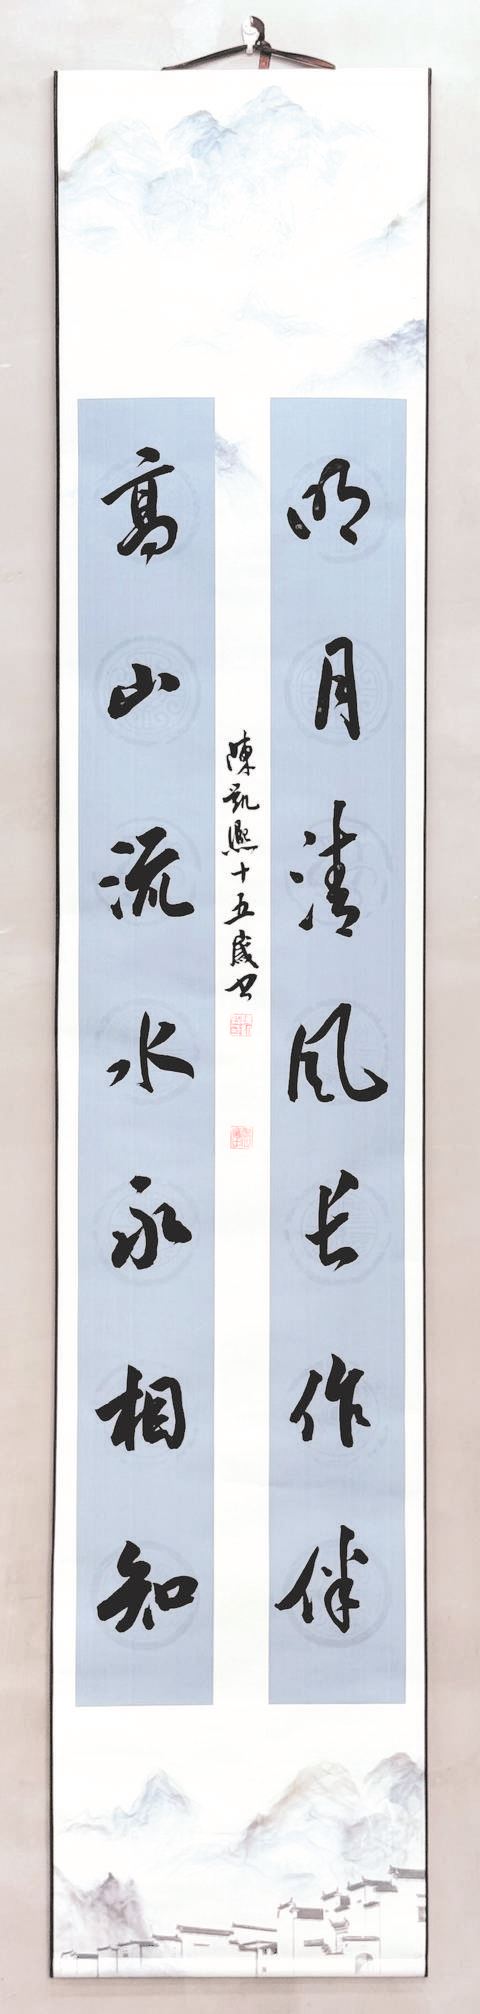 明月清风长作伴
高山流水永相知
陳凱熙十五歲书